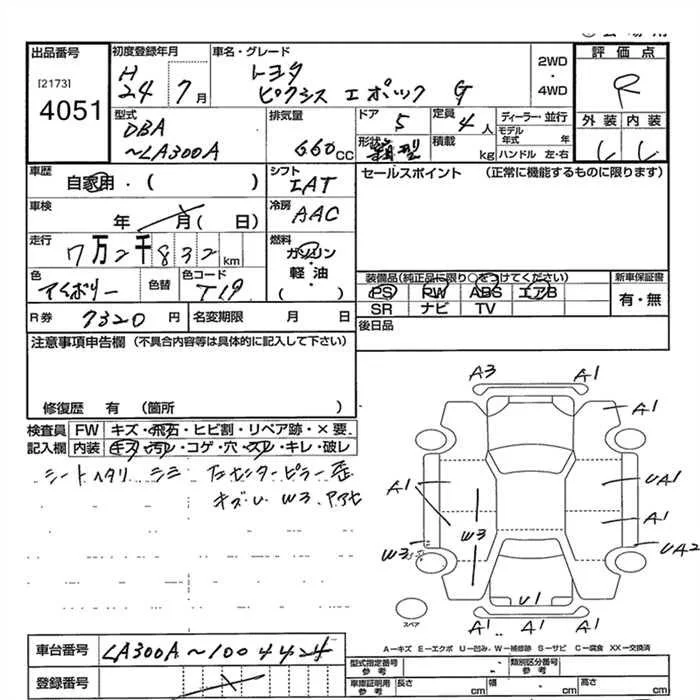 出品番号
[2173]
4051
初度登録年月
H 24 7月
車名・グレード
トヨタ
ピクシス エポック G
2WD
・
4WD
評価点
R
外装 内装
型式
DBA
〜LA300A
排気量
660cc
ドア
5
定員
4人
ディーラー・並行
モデル
年式 年
形状 箱型
積載 kg
ハンドル 左・右
車歴
自家用・( )
シフト
IAT
セールスポイント (正常に機能するものに限ります)
車検
年 月( 日)
冷房
AAC
走行
7万2千832km
燃料
ガソリン
・
軽・油
・
( )
色
アイボリー
色替
色コード
T19
装備品(純正品に限り○をつけてください)
PS RW ABS エアB
SR ナビ TV
新車保証書
有・無
R券 7320円
名変期限 月 日
後日品
注意事項申告欄 (不具合内容等は具体的に記入して下さい)
修復歴 有 (箇所 )
検査員 FW キズ・飛石・ヒビ割・リペア跡・×要.
記入欄 内装 キズ・汚レ・コゲ・穴・スレ・キレ・破レ
シートヘタリ シミ センターピラー歪
キズU W3.
A3 A1
A1
A1 UA1
A1
W3 W3 UA2
U1
A1 A1
スペア
A－キズ E－エクボ U－凹み. W－補修跡 S－サビ C－腐食 XX－交換済
車台番号
LA300A〜1004424
登録番号
型式指定番号
参考
類別区分番号
参考
車庫証明用
参考
長さ cm
幅 cm
高さ cm